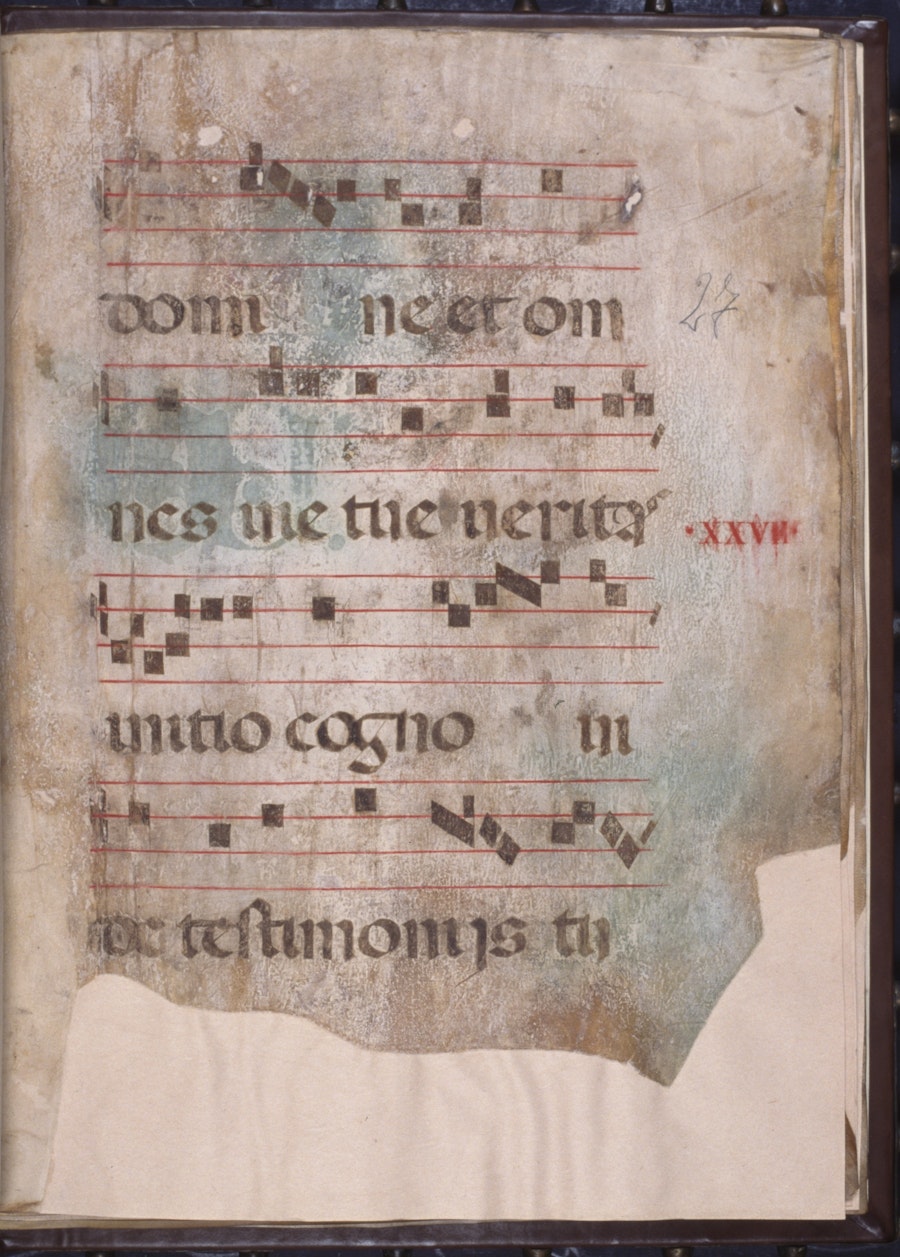 domi ne et om
27
nes uie tue ueritas
·XXVII·
initio cogno ui
de testimonijs tu